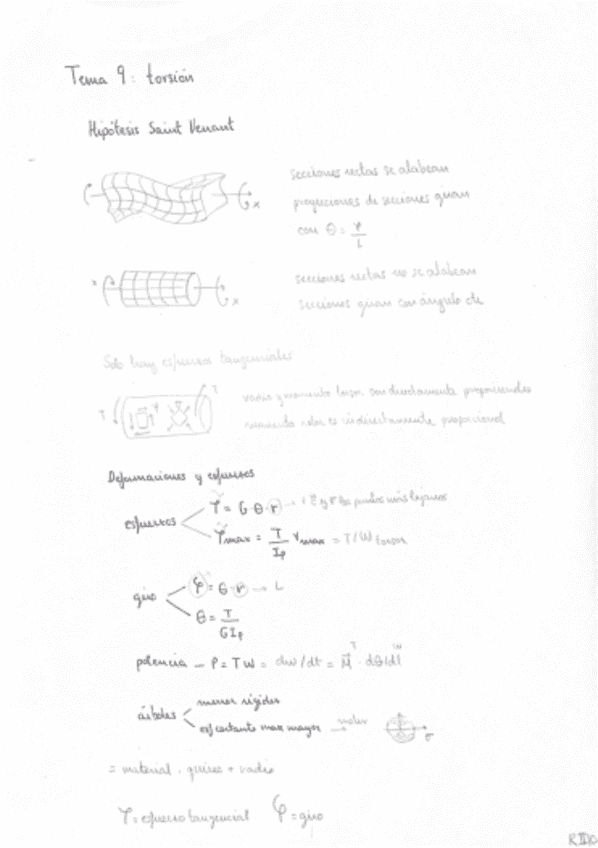 Tema 9: torsión
Hipótesis Saint Venant
secciones rectas se alabean
proyecciones de secciones giran
con θ = φ/L
x
secciones rectas no se alabean
x x
secciones giran con ángulo cte
Solo hay esfuerzos tangenciales
T
radio y momento torsor son directamente proporcionales
T
momento polar es indirectamente proporcional
Deformaciones y esfuerzos
esfuerzos
τ = G·θ·r → puntos más lejanos
τmax = T/Ip rmax = T/Wtorsor
giro
φ = θ·r → L
θ = T/GIp
potencia – P = TW = dw/dt = M · dθ/dt
árboles
menor rigidez
esf cortante max mayor → mohr
σ
= material
τ = esfuerzo tangencial φ = giro